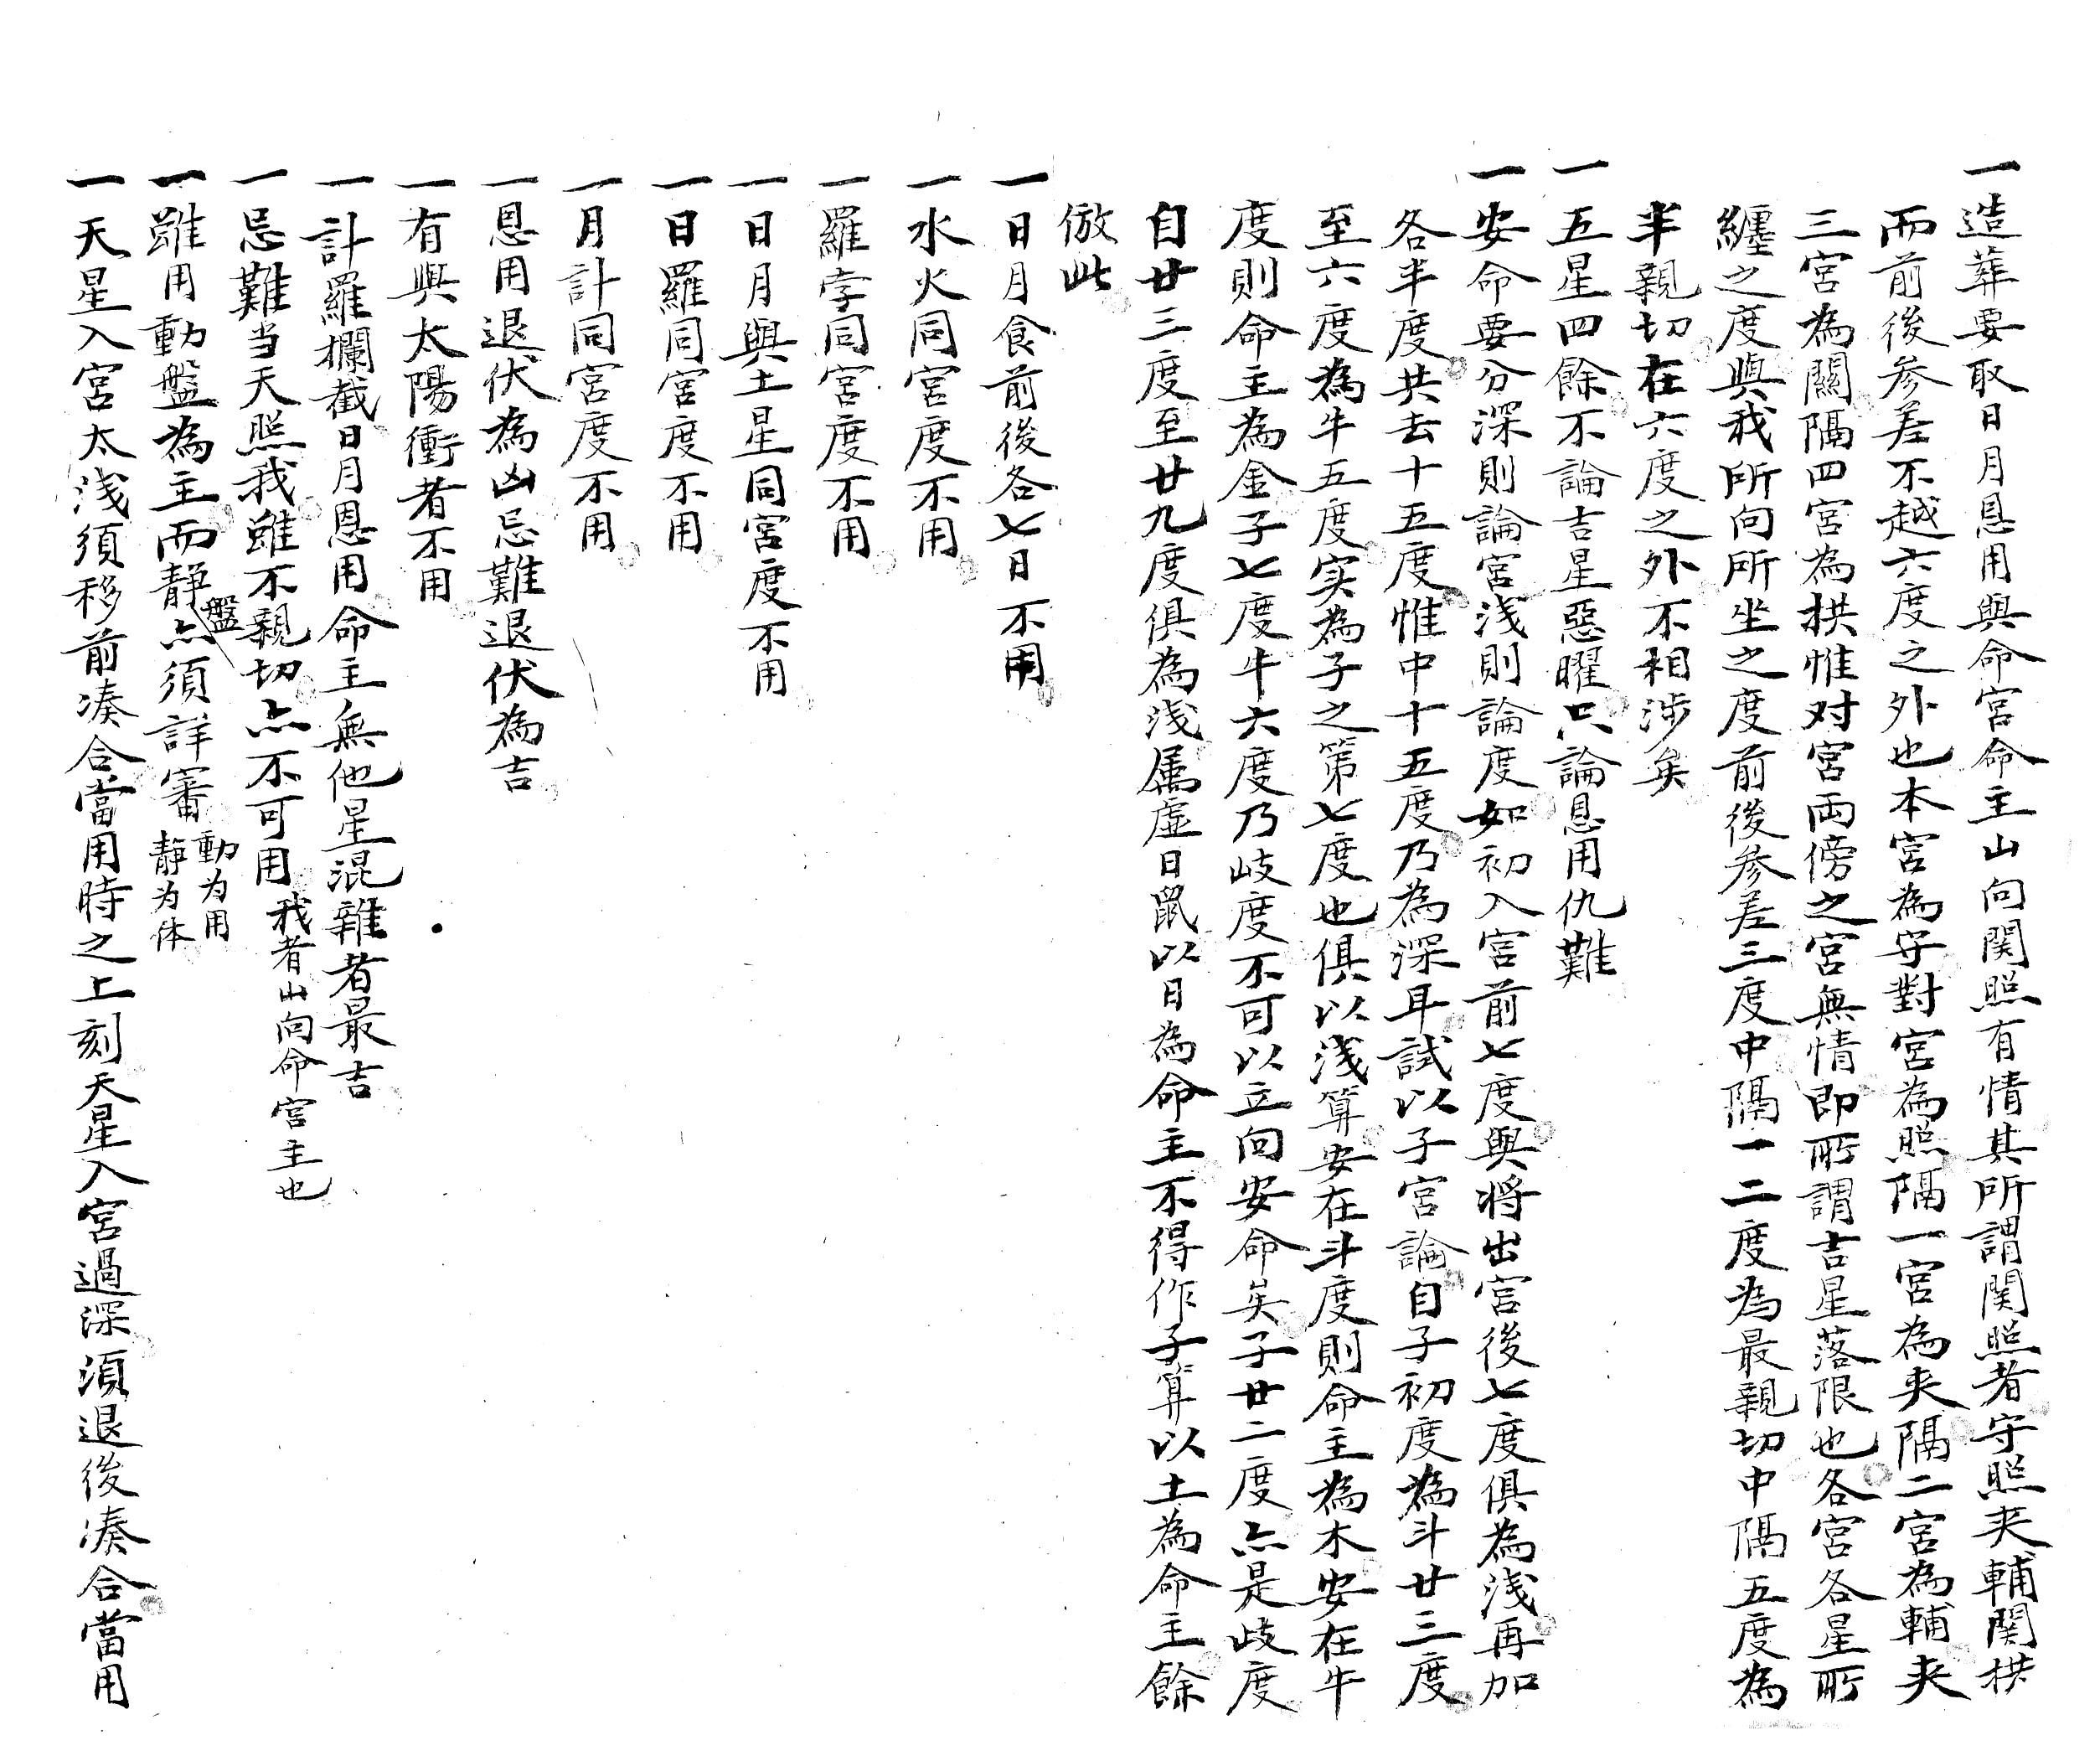 一造葬要取日月恩用與命宮命主山向関照有情其所謂関照者守照夾輔関拱
而前後参差不越六度之外也本宮為守對宮為照隔一宮為夾隔二宮為輔夾
三宮為關隔四宮為拱惟对宮両傍之宮無情即所謂吉星落限也各宮各星所
纏之度與我所向所坐之度前後参差三度中隔一二度為最親切中隔五度為
半親切在六度之外不相涉矣
一五星四餘不論吉星惡曜只論恩用仇難
一安命要分深則論宮浅則論度如初入宮前七度與将出宮後七度俱為浅再加
各半度共去十五度惟中十五度乃為深耳試以子宮論自子初度為斗廿三度
至六度為牛五度实為子之第七度也俱以浅算安在斗度則命主為木安在牛
度則命主為金子七度牛六度乃歧度不可以立向安命矣子廿二度亦是歧度
自廿三度至廿九度俱為浅属虚日鼠以日為命主不得作子算以土為命主餘
倣此
一日月食前後各七日不用
一水火同宮度不用
一羅孛同宮度不用
一日月與土星同宮度不用
一日羅同宮度不用
一月計同宮度不用
一恩用退伏為凶忌難退伏為吉
一有與太陽衝者不用
一計羅攔截日月恩用命主無他星混雜者最吉
一忌難当天照我雖不親切亦不可用我者山向命宮主也
一雖用動盤為主而静盤亦須詳審動为用静为体
一天星入宮太浅須移前凑合當用時之上刻天星入宮過深須退後凑合當用